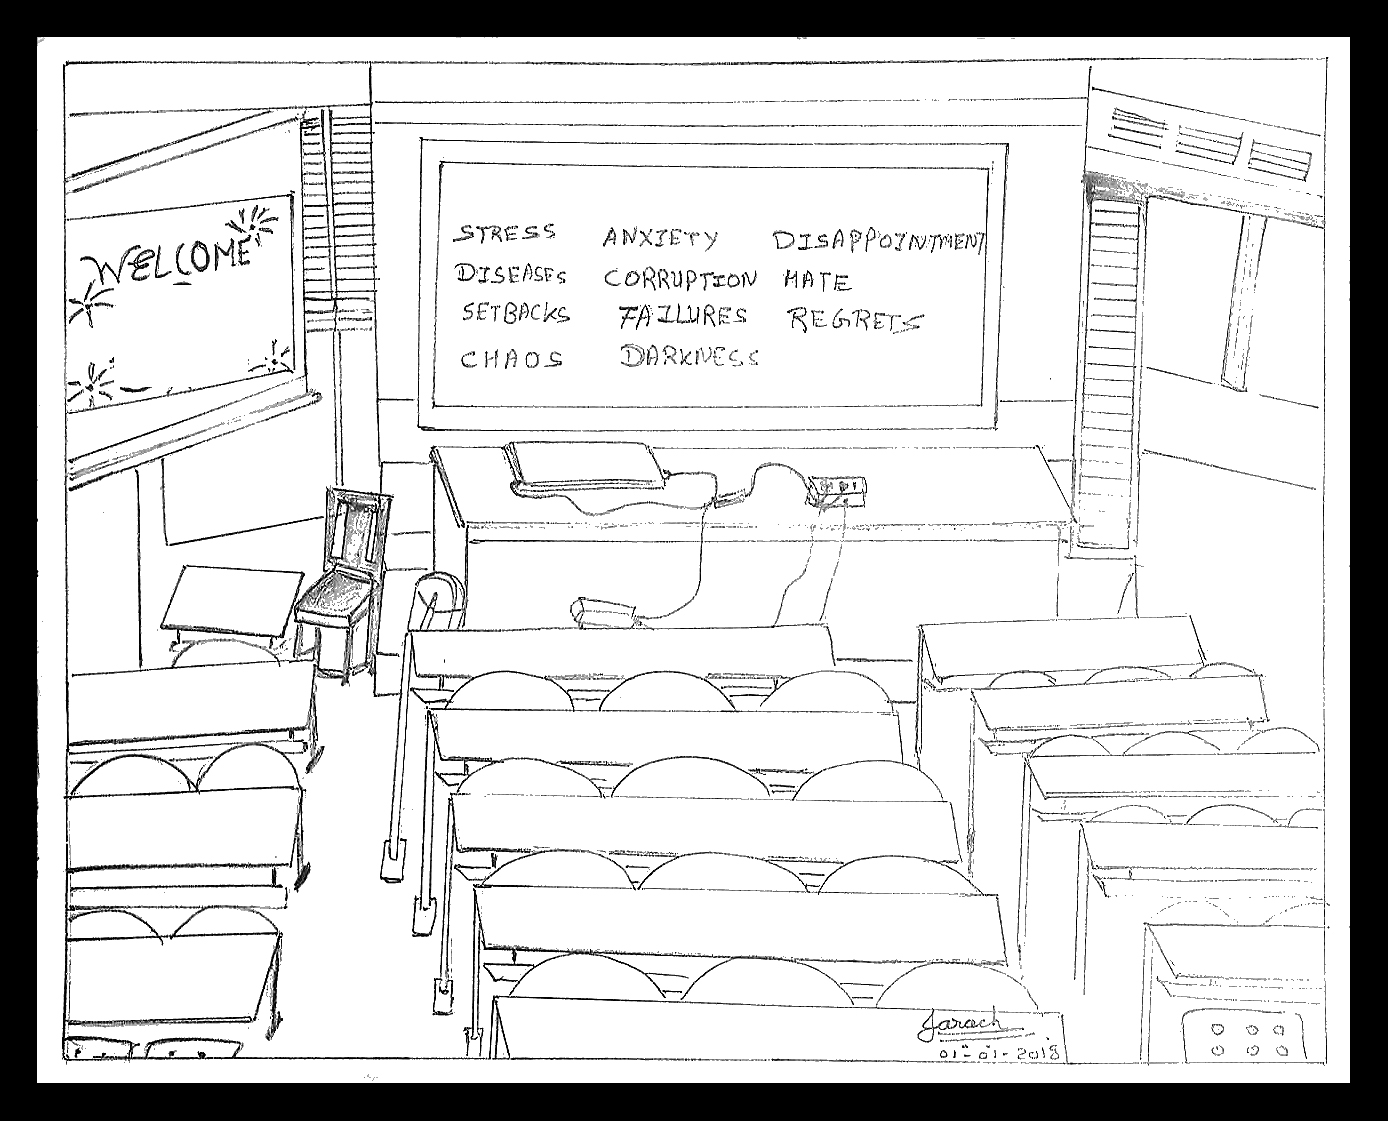 WELCOME
STRESS ANXIETY DISAPPOINTMENT
DISEASES CORRUPTION HATE
SETBACKS FAILURES REGRETS
CHAOS DARKNESS
01-01-2018